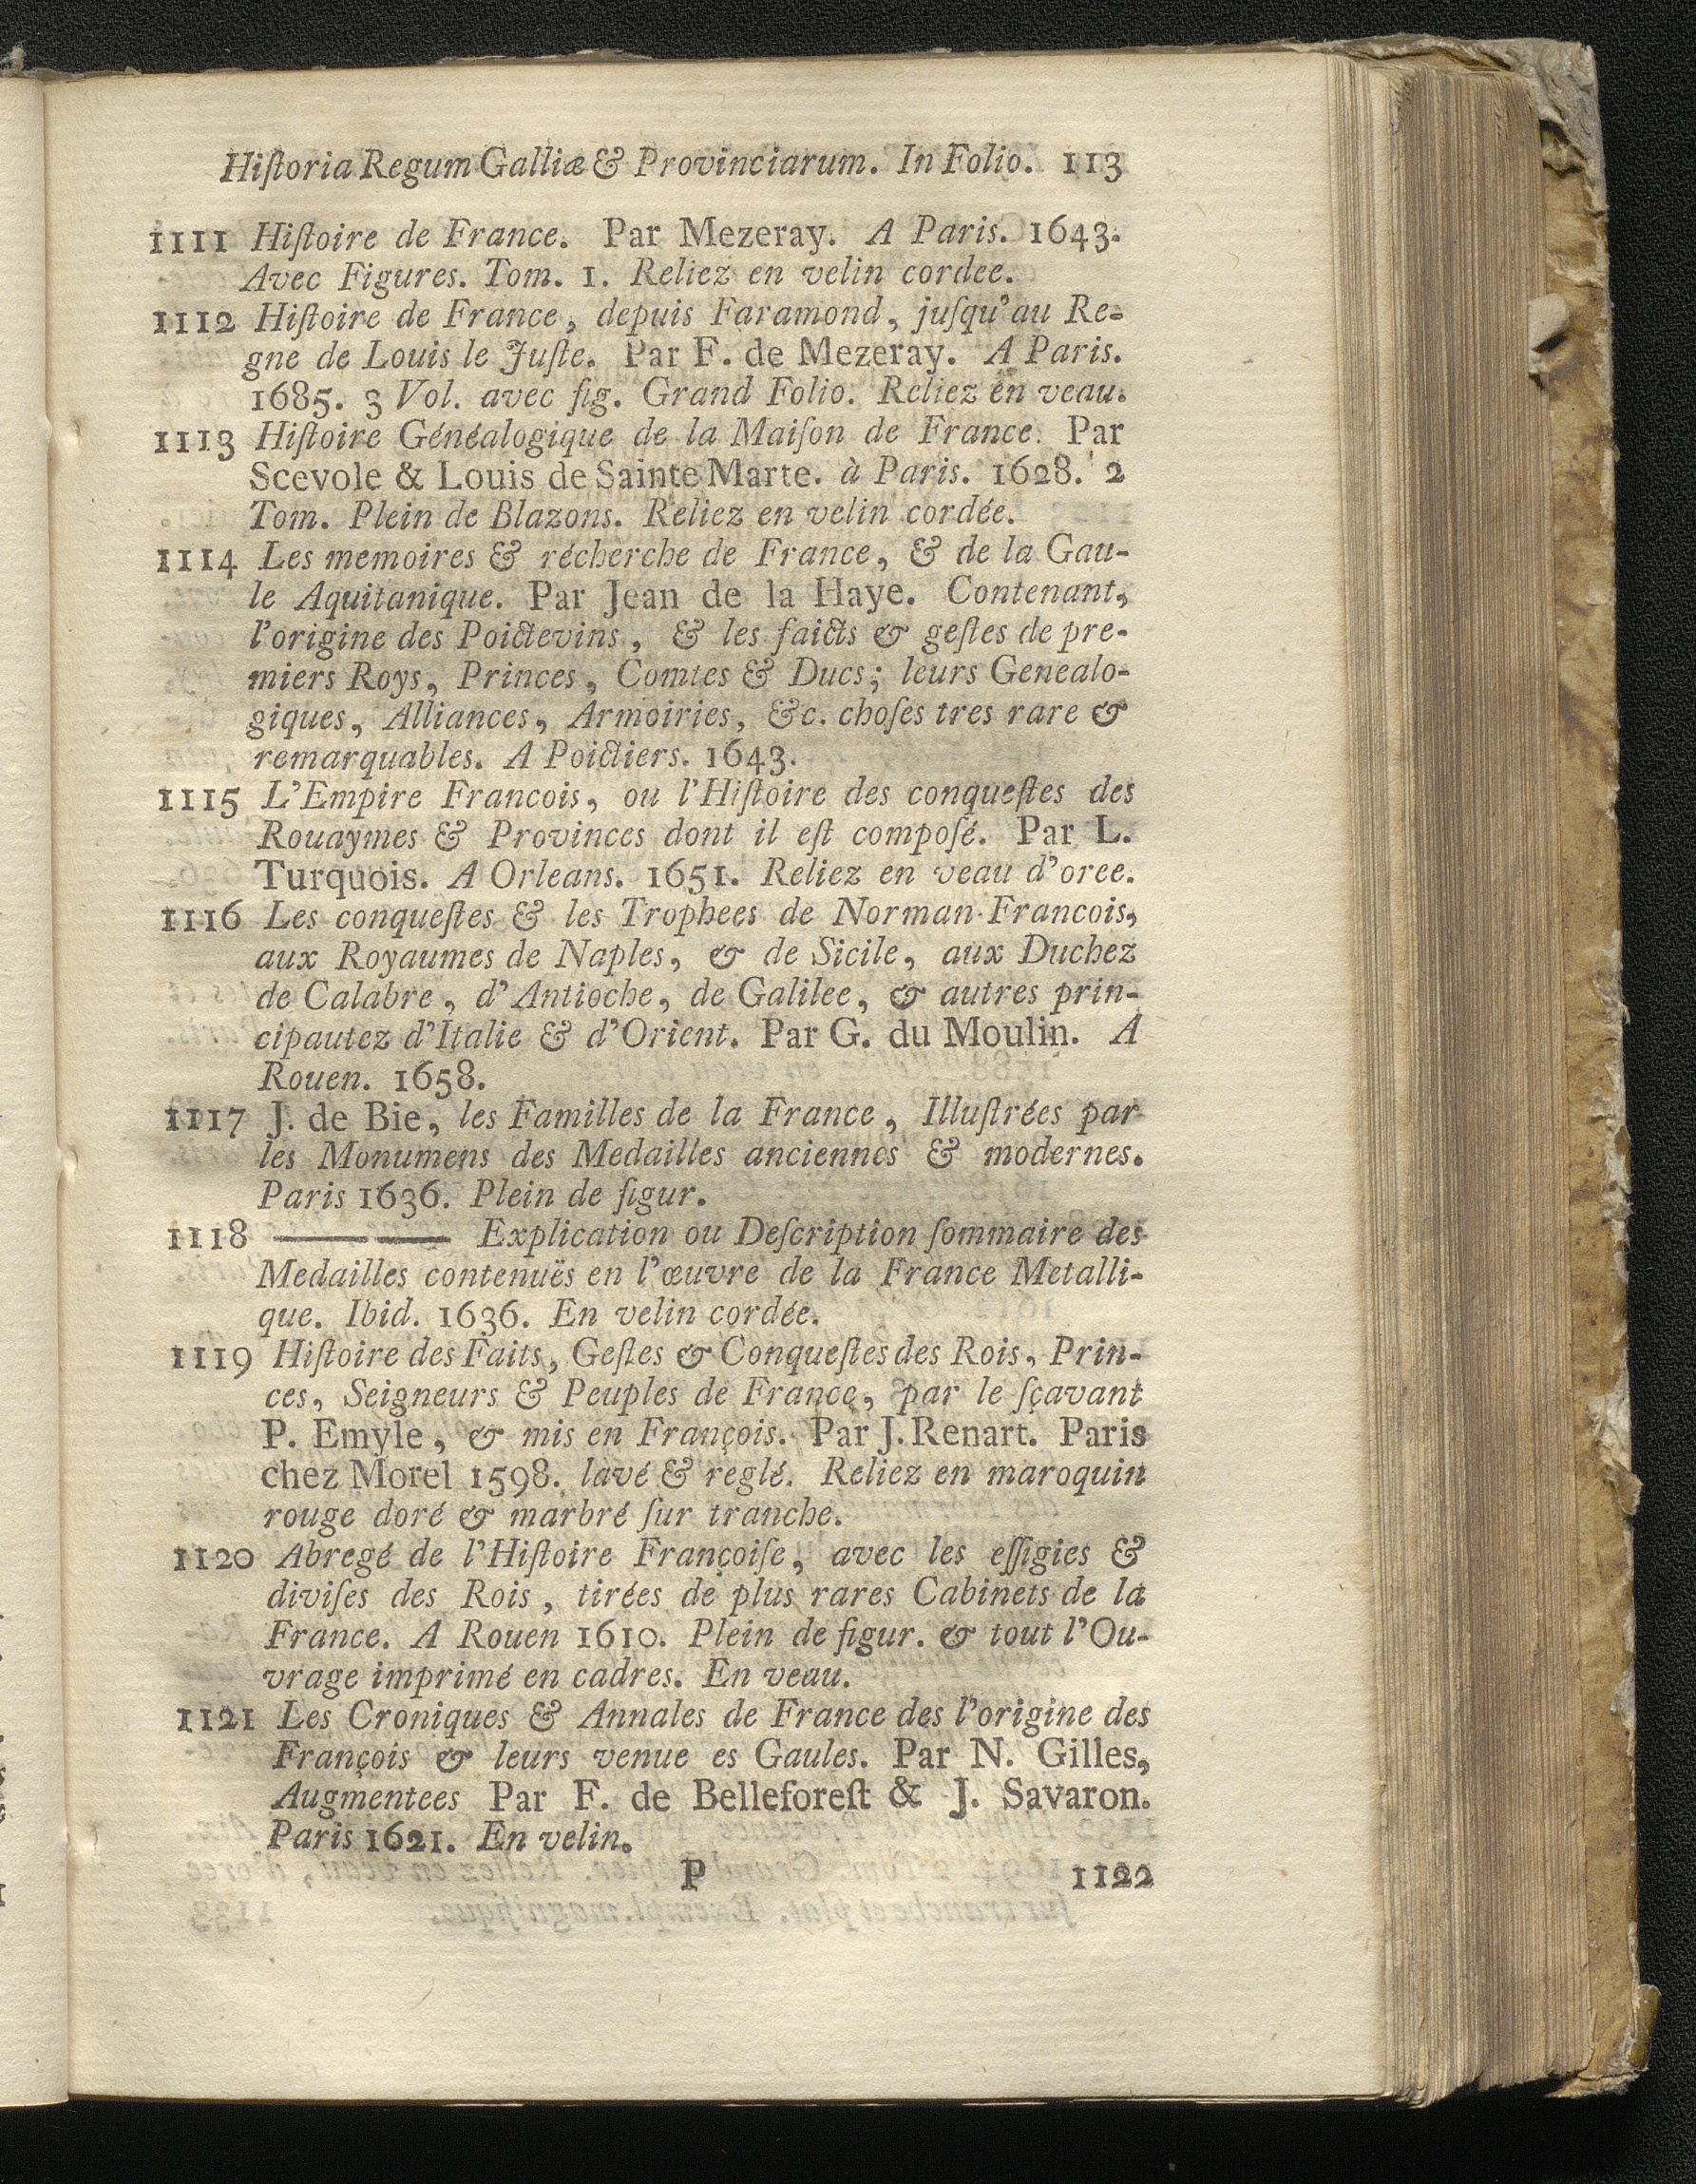 Hiſtoria Regum Galliæ & Provinciarum. In Folio. 113
1111 Hiſtoire de France. Par Mezeray. A Paris. 1643.
Avec Figures. Tom. 1. Reliez en velin cordee.
1112 Hiſtoire de France, depuis Faramond, juſqu'au Re-
gne de Louis le Juſte. Par F. de Mezeray. A Paris.
1685. 3 Vol. avec fig. Grand Folio. Reliez en veau.
1113 Hiſtoire Généalogique de la Maiſon de France. Par
Scevole & Louis de Sainte Marte. à Paris. 1628. 2
Tom. Plein de Blazons. Reliez en velin cordée.
1114 Les memoires & récherche de France, & de la Gau-
le Aquitanique. Par Jean de la Haye. Contenant,
l'origine des Poictevins, & les faicts & geſtes de pre-
miers Roys, Princes, Comtes & Ducs; leurs Genealo-
giques, Alliances, Armoiries, &c. choſes tres rare &
remarquables. A Poictiers. 1643.
1115 L'Empire Francois, ou l'Hiſtoire des conqueſtes des
Rouaymes & Provinces dont il eſt compoſé. Par L.
Turquois. A Orleans. 1651. Reliez en veau d'oree.
1116 Les conqueſtes & les Trophees de Norman-Francois,
aux Royaumes de Naples, & de Sicile, aux Duchez
de Calabre, d'Antioche, de Galilee, & autres prin-
cipautez d'Italie & d'Orient. Par G. du Moulin. A
Rouen. 1658.
1117 J. de Bie, les Familles de la France, Illuſtrées par
les Monumens des Medailles anciennes & modernes.
Paris 1636. Plein de figur.
1118 —— —— Explication ou Deſcription ſommaire des
Medailles contenuës en l'œuvre de la France Metalli-
que. Ibid. 1636. En velin cordée.
1119 Hiſtoire des Faits, Geſtes & Conqueſtes des Rois, Prin-
ces, Seigneurs & Peuples de France, par le ſçavant
P. Emyle, & mis en François. Par J. Renart. Paris
chez Morel 1598. lavé & reglé. Reliez en maroquin
rouge doré & marbré ſur tranche.
1120 Abregé de l'Hiſtoire Françoiſe, avec les eſſigies &
diviſes des Rois, tirées de plus rares Cabinets de la
France. A Rouen 1610. Plein de figur. & tout l'Ou-
vrage imprimé en cadres. En veau.
1121 Les Croniques & Annales de France des l'origine des
François & leurs venue es Gaules. Par N. Gilles,
Augmentees Par F. de Belleforeſt & J. Savaron.
Paris 1621. En velin.
P 1122